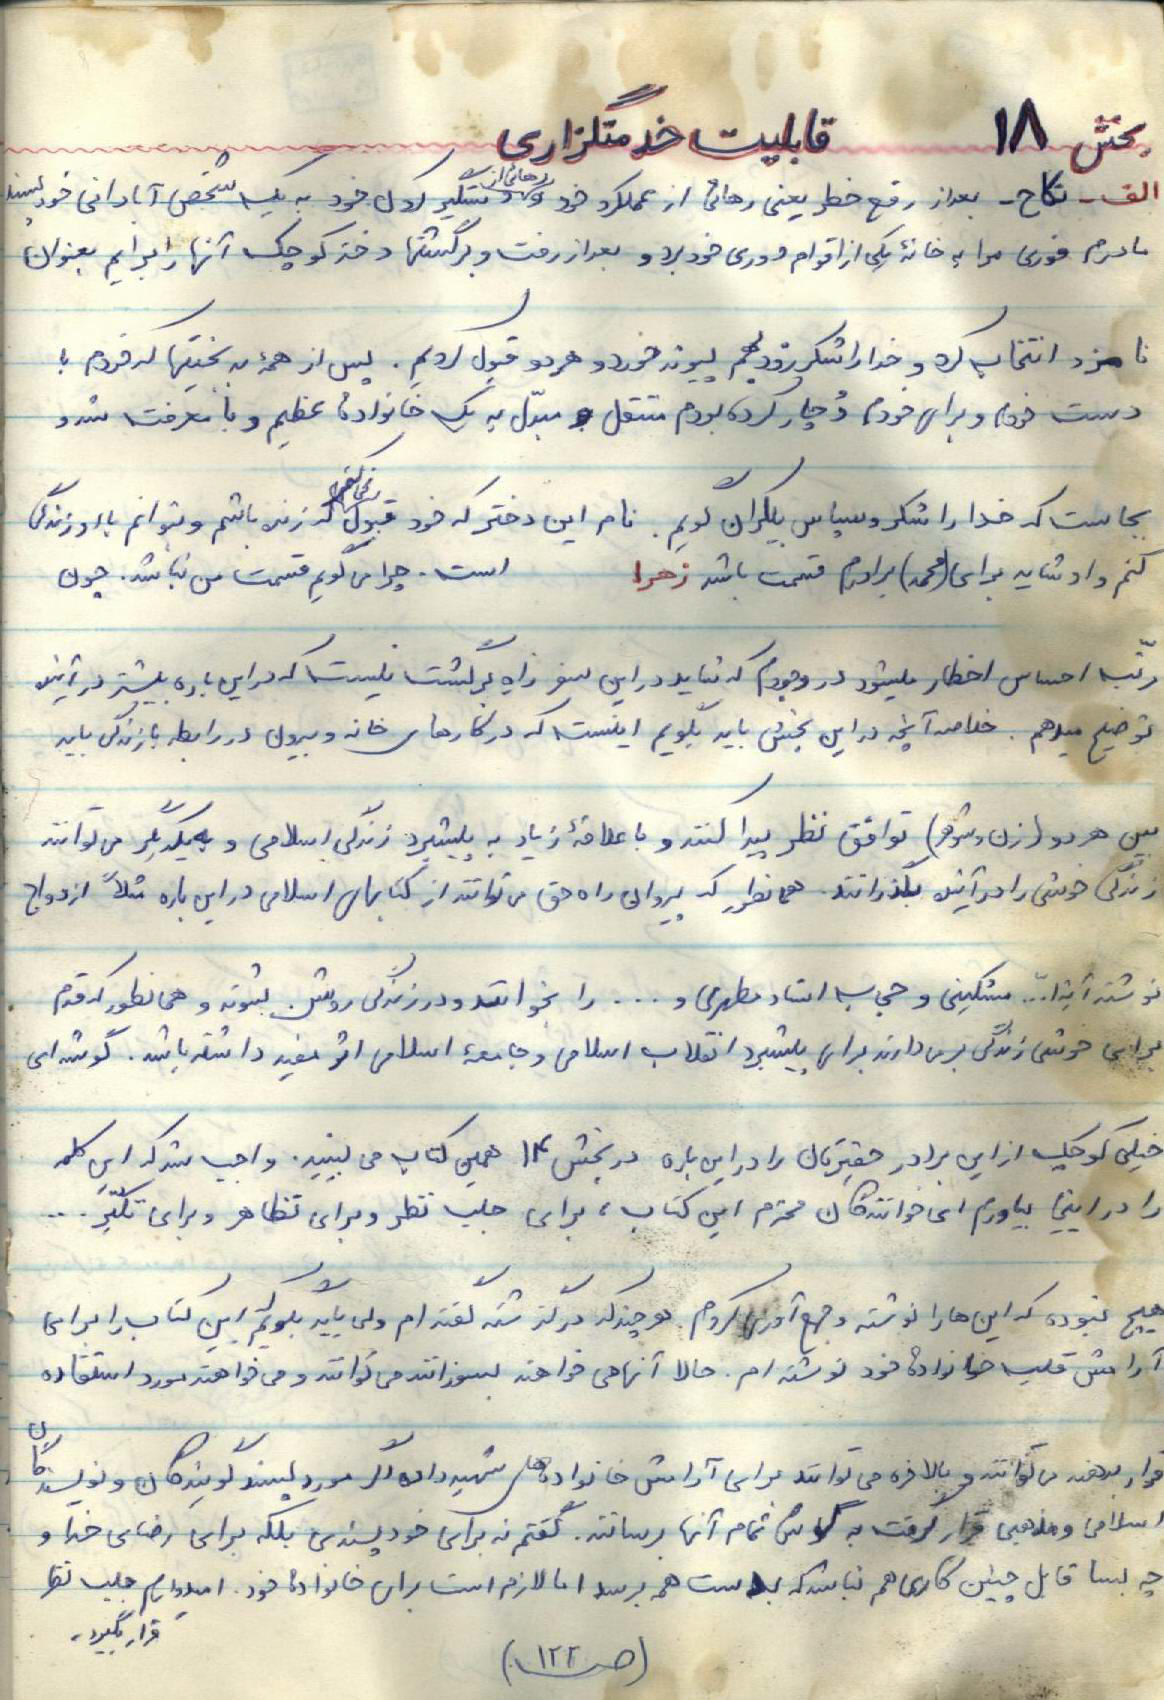 بخش ۱۸ قابلیت خدمتگزاری
الف - نکاح - بعد از رفع خطر یعنی رهائی از عملکرد خود و رهائی از دستگیر کردن خود به یک شخص آبادانی خود پسند
مادرم فوری مرا به خانهٔ یکی از اقوام دوری خود برد و بعد از رفت و برگشتها دختر کوچک آنها را برایم بعنوان
نامزد انتخاب کرد و خدا را شکر زود بهم پیوند خورد و هر دو قبول کردیم. پس از همهٔ بدبختیها که خودم با
دست خودم و برای خودم دچار کرده بودم منتقل و مبدّل به یک خانوادهٔ عظیم و با معرفت شد و
بجاست که خدا را شکر و سپاس بیکران گویم. نام این دختر که خود قبول نمی‌کنم که زنده باشم و بتوانم با او زندگی
کنم و او شاید برای (محمد) برادرم قسمت باشد زهرا است. چرا می‌گویم قسمت من نباشد. چون
رتبه احساس اخطار میشود در وجودم که شاید در این سفر راه برگشت نیست که در این باره بیشتر در آینده
توضیح میدهم. خلاصه آنچه در این بخش باید بگویم اینست که در کارهای خانه و بیرون در رابطه با زندگی باید
بین هر دو (زن و شوهر) توافق نظر پیدا کنند و با علاقهٔ زیاد به پیشبرد زندگی اسلامی و به یکدیگر می‌توانند
زندگی خوشی را در آینده بگذرانند. همانطور که پیروان راه حق می‌توانند از کتابهای اسلامی در این باره مثلاً ازدواج
نوشته آیة ا... مشکینی و حجاب استاد مطهری و .... را بخوانند و در زندگی روشن بشوند و همانطور که قدم
برای خوشی زندگی بر می‌دارند برای پیشبرد انقلاب اسلامی و جامعهٔ اسلامی اثر مفید داشته باشد. گوشه‌ای
خیلی کوچک از این برادر حقیرتان را در این باره در بخش ۱۴ همین کتاب می‌بینید. واجب شد که این کلمه
را در اینجا بیاورم ای خوانندگان محترم این کتاب، برای جلب نظر و برای تظاهر و برای تکبّر ....
هیچ نبوده که این ها را نوشته و جمع آوری کردم. هر چند که در گذشته گفته ام ولی باید بگویم که این کتاب را برای
آرامش قلب خانوادهٔ خود نوشته ام. حالا آنها می خواهند بسوزانند می توانند و می خواهند مورد استفاده
قرار بدهند می توانند و بالاخره می توانند برای آرامش خانواده‌های شهید داده اگر مورد پسند گویندگان و نویسندگان
اسلامی و مذهبی قرار گرفت به گوش تمام آنها برسانند. گفتم نه برای خود پسندی بلکه برای رضای خدا و
چه بسا قابل چنین کاری هم نباشد که بدست همه برسد اما لازم است برای خانوادهٔ خود. امیدوارم جلب نظر
قرار بگیرد.
(ص ۱۲۲)